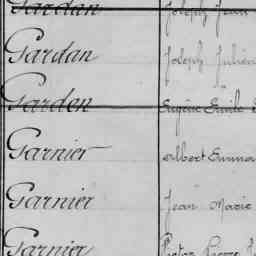 Gardan Joseph Jean
Gardan Joseph Julien
Gardon Eugène Emile
Garnier Albert Emma
Garnier Jean Marie
Garnier Victor Pierre